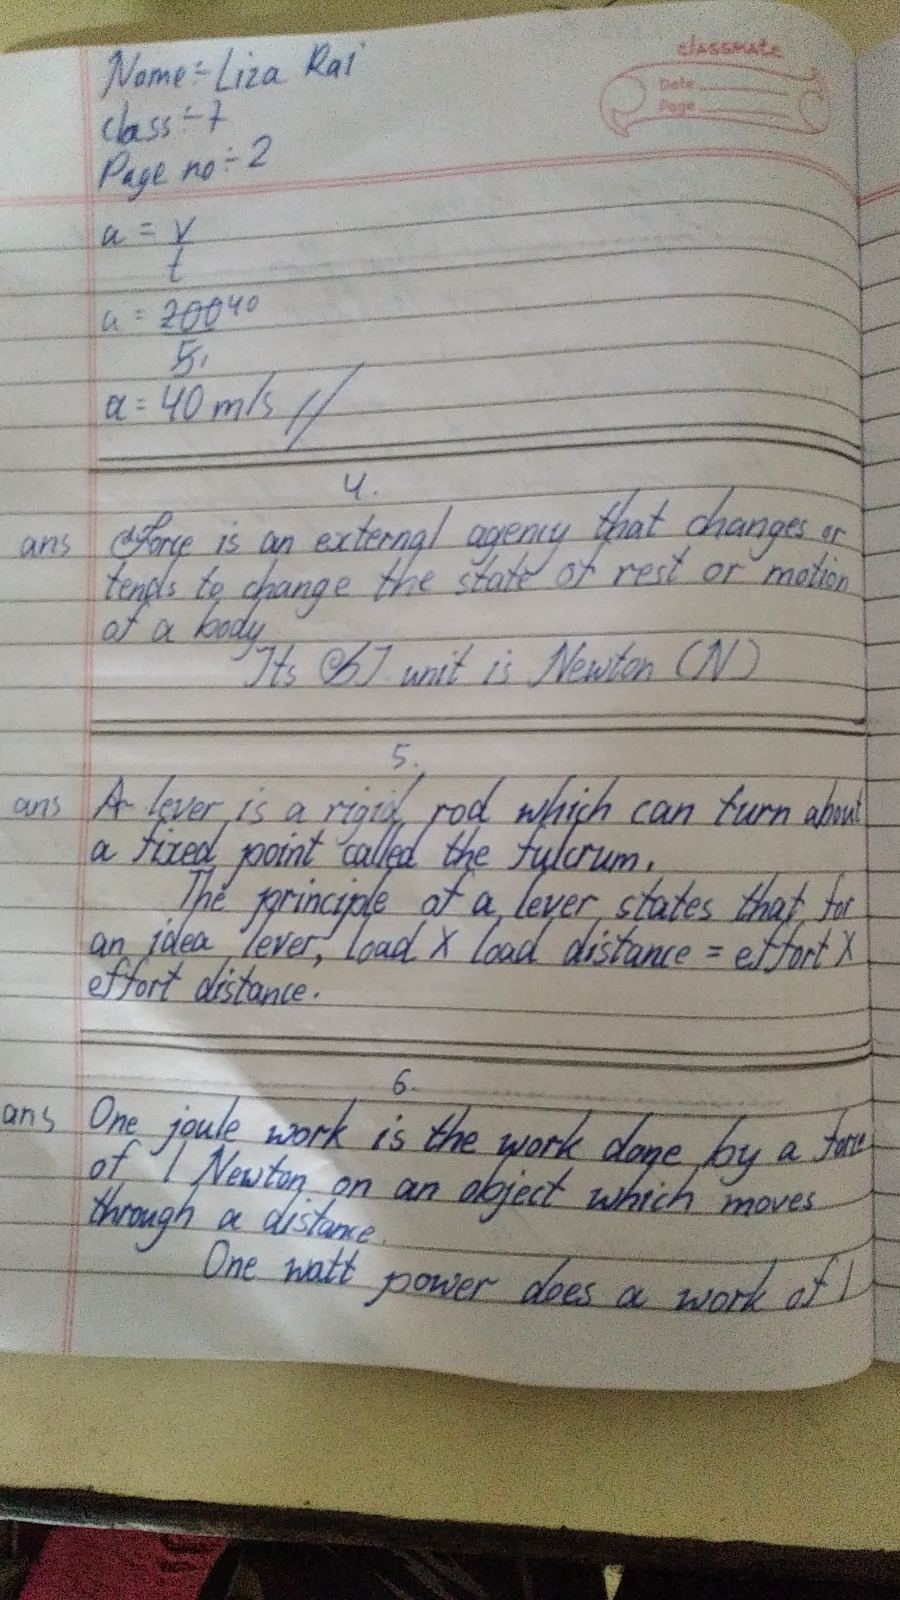 Name:- Liza Rai
classmate
Date
Page
class:- 7
Page no:- 2
a = v
t
a = 200 40
5 1
a = 40 m/s //
4.
ans Force is an external agency that changes or
tends to change the state of rest or motion
of a body
Its SI unit is Newton (N)
5.
ans A lever is a rigid rod which can turn about
a fixed point called the fulcrum.
The principle of a lever states that for
an idea lever, load X load distance = effort X
effort distance.
6.
ans One joule work is the work done by a force
of 1 Newton on an object which moves
through a distance.
One watt power does a work of 1